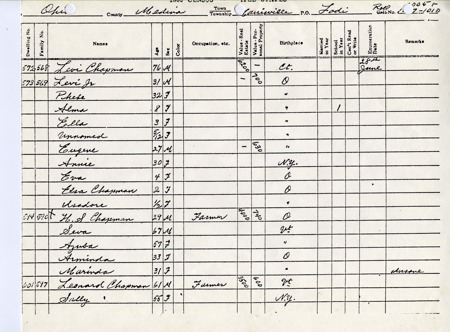 Ohio County Medina Town Township P.O. Lodi
Dwelling No. Family No. Names Age Sex Color Occupation, etc. Value - Real Estate Value - Personal Property Birthplace Married in Year School in Year Can't Read or Write Enumeration Date Remarks
572 568 Levi Chapman 76 M — Ct. June
573 569 Levi Jr 31 M — 700 O
Phebe 32 F "
Alma 8 F " 1
Ella 3 F "
Unnamed 5/12 F "
Eugene 27 M — "
Annie 30 F N.Y.
Eva 4 F O
Elsa Chapman 2 F O
Isadore F O
H. S Chapman 29 M Farmer O
Seva 67 M Vt
Azuba 57 F "
Arminda 33 F O
Marinda 31 F " Insane
Leonard Chapman 61 M Farmer Vt
Sally " 55 F N.Y.